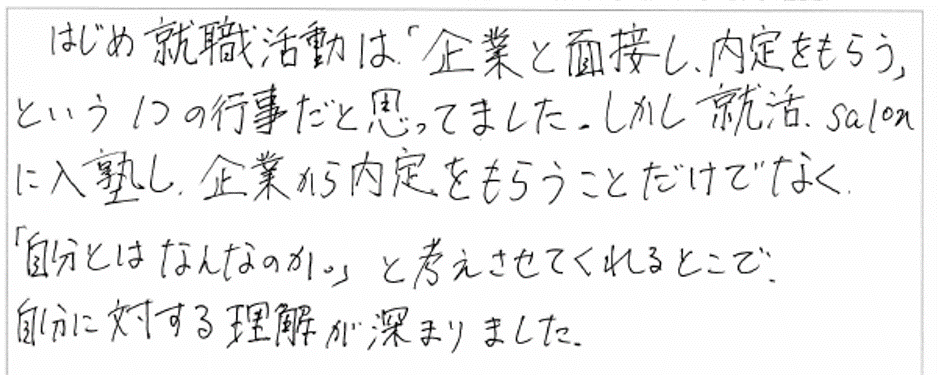 はじめ就職活動は、「企業と面接し、内定をもらう」
という1つの行事だと思ってました。しかし就活、salon
に入塾し、企業から内定をもらうことだけでなく、
「自分とはなんなのか。」と考えさせてくれるとこで、
自分に対する理解が深まりました。